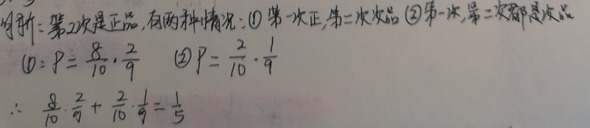 分析：第2次是正品，有两种情况：① 第一次正，第二次次品 ②第一次，第二次都是次品
①：P=8/10·2/9 ②P=2/10·1/9
∴ 8/10·2/9+2/10·1/9=1/5